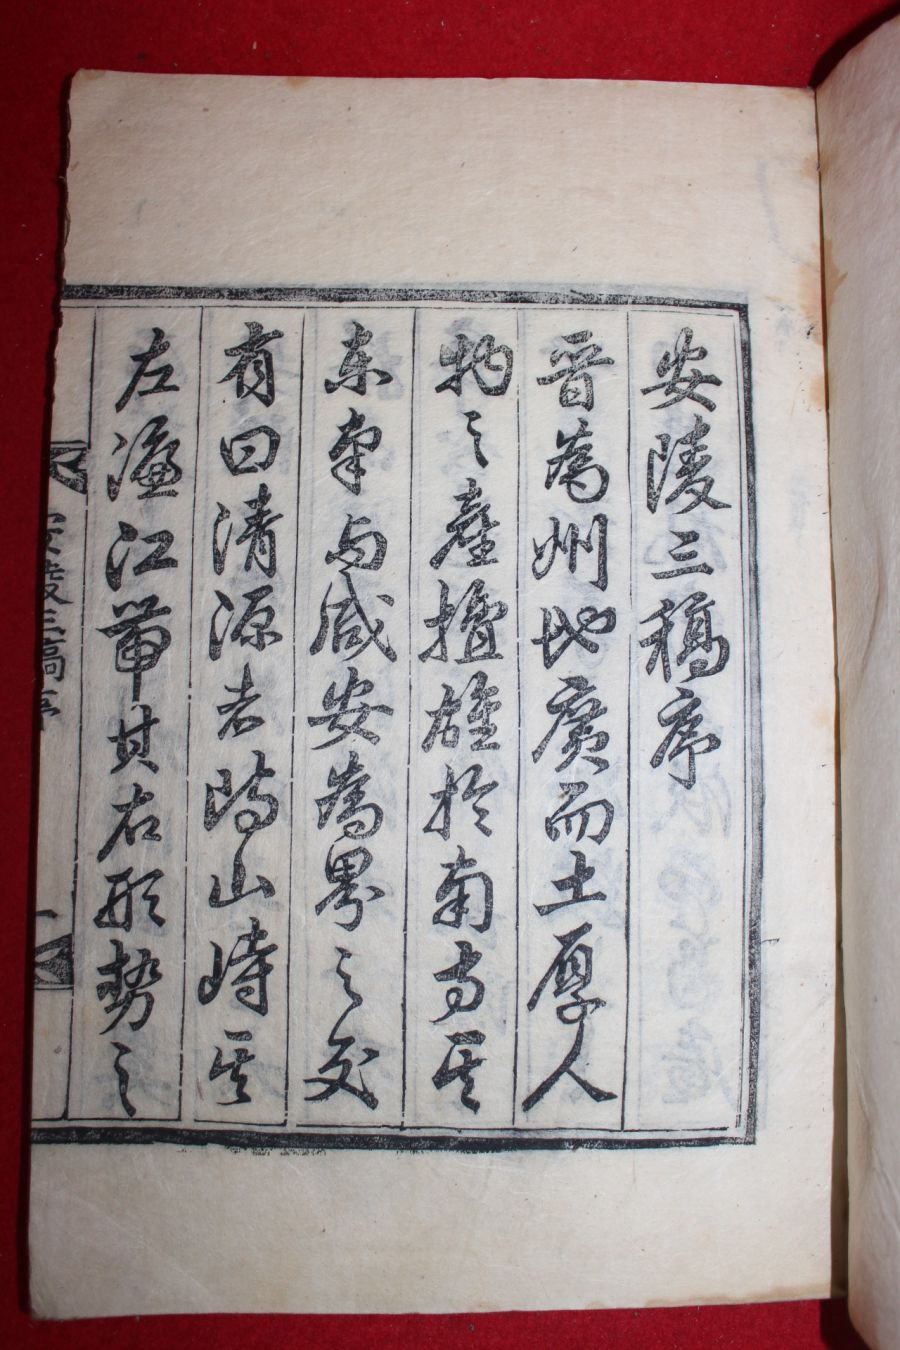 安陵三稿序
晋為州地廣而土厚人
物之產擅雄於南方其
东南与咸安為界之交
有曰清源者防山峙其
左濂江帶其右形勢之
安陵三稿序
一